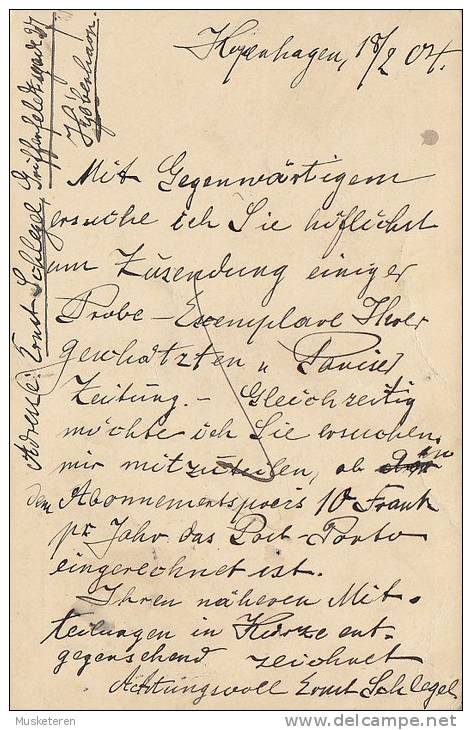 Kopenhagen, 18/2 04.
Mit Gegenwärtigem
ersuche ich Sie höflichst
um Zusendung einiger
Probe-Exemplare Ihrer
geschätzten "Pariser
Zeitung. - Gleichzeitig
möchte ich Sie ersuchen
mir mitzuteilen, ob in
dem Abonnementspreis 10 Frank
pr Jahr das Post-Porto
eingerechnet ist.
Ihren näheren Mit-
teilungen in Kürze ent-
gegensehend zeichnet
Achtungsvoll Ernst Schlegel
Adresse: Ernst Schlegel,
Kjöbenhavn.
© Musketeren
www.delcampe.net